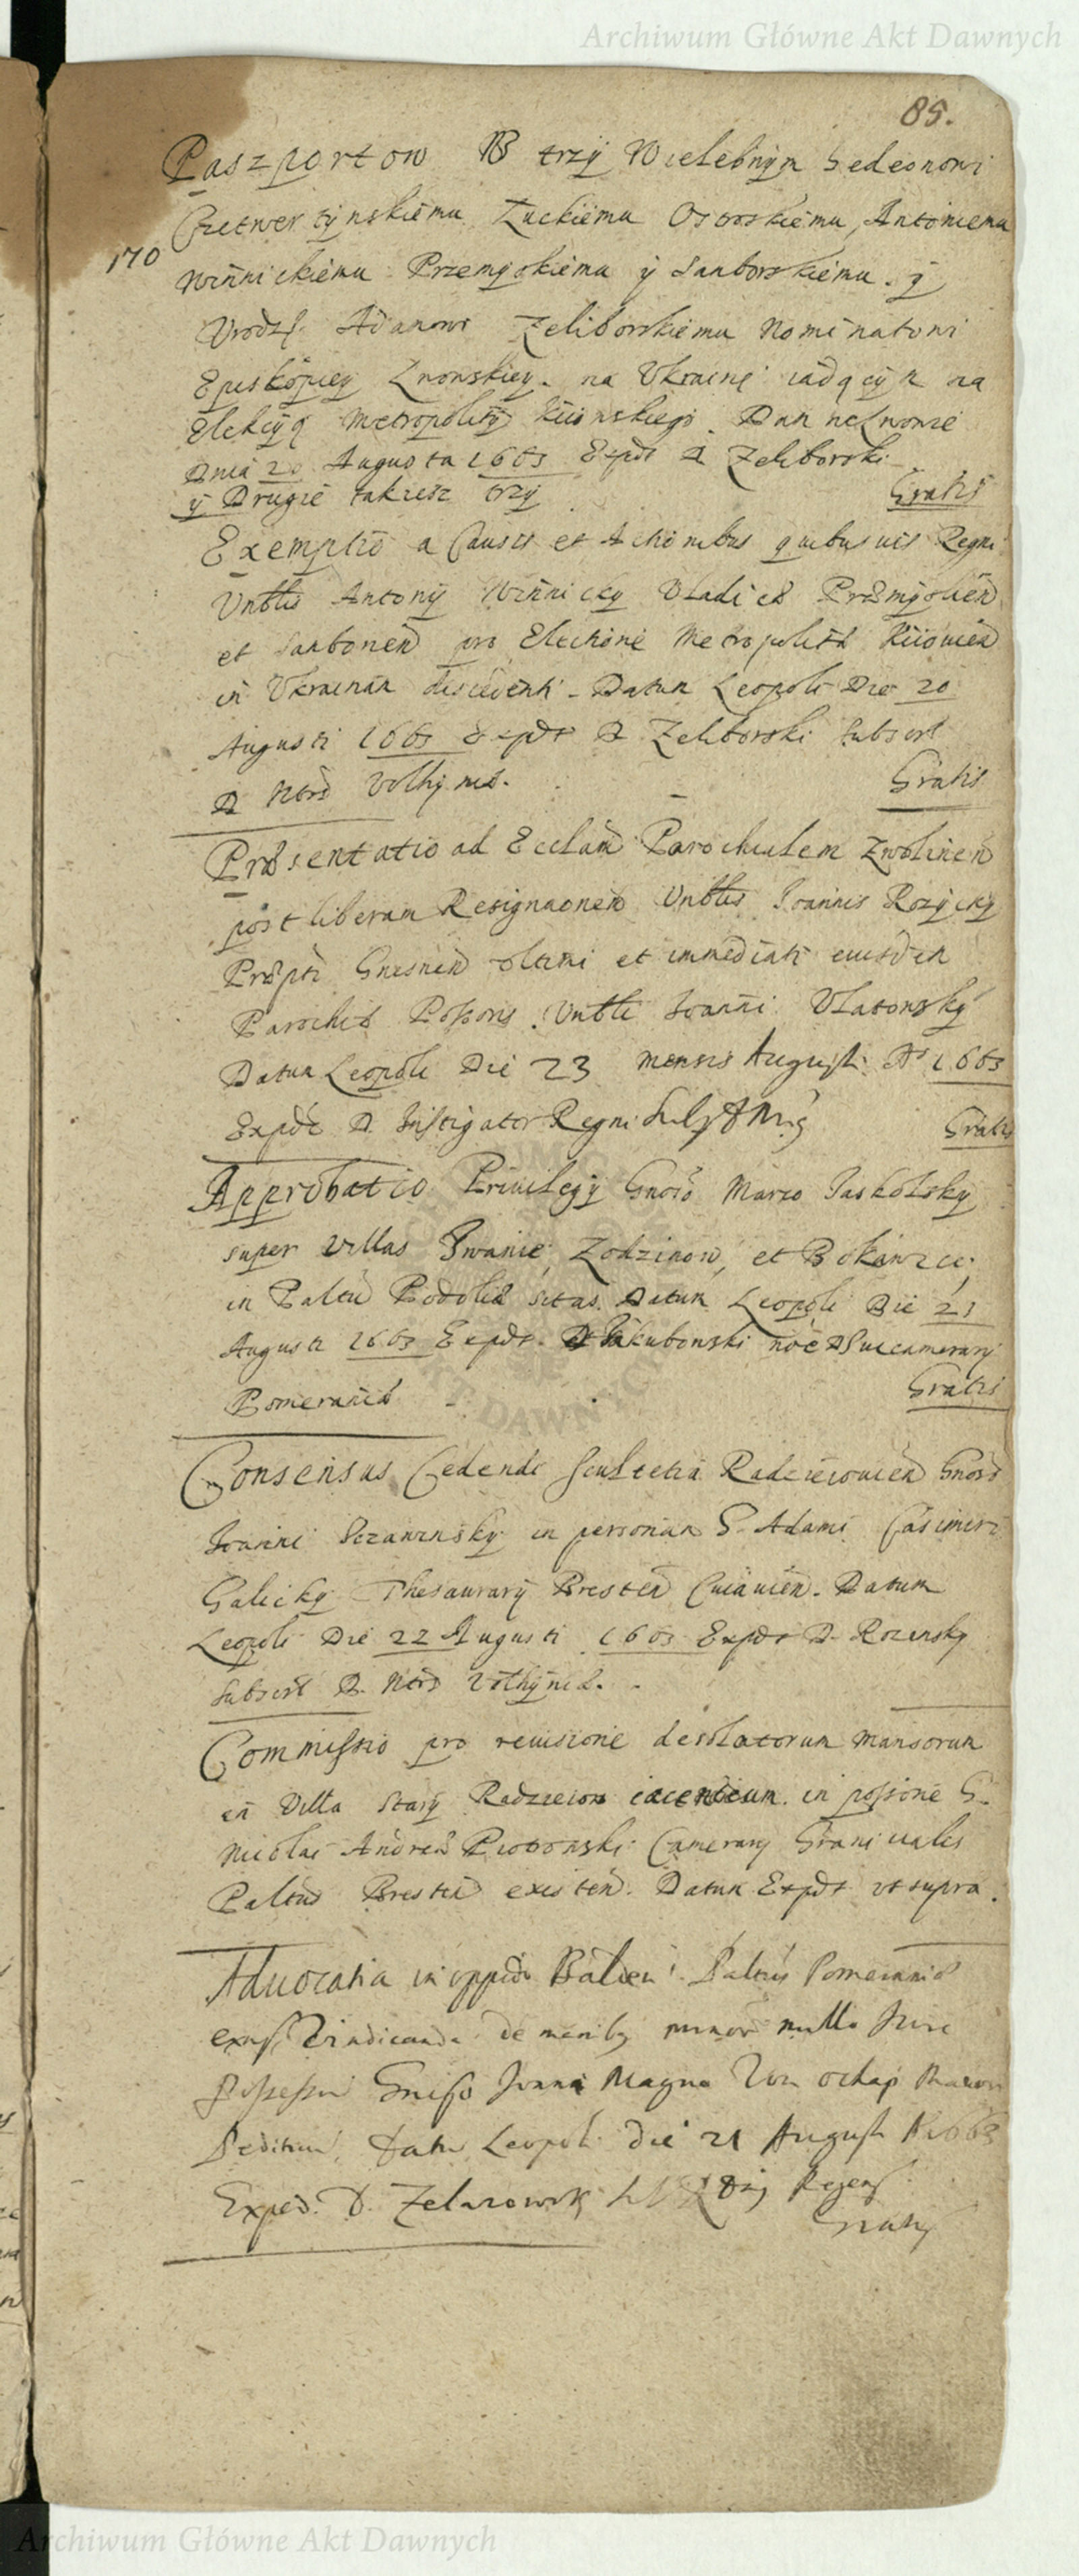 Archiwum Główne Akt Dawnych
85.
Paszportow trzÿ Wielebnÿm Gedeonowi
Czetwertÿnskiemu Łuckiemu Ostroskiemu, Antoniemu
170
Winnickiemu Przemÿskiemu ÿ Samborskiemu. ÿ
Vrodz. Adamowi Zeliborskiemu Nominatowi
Episkopiey Lwowskiey. na Vkrainę iadącÿm na
Elekcÿą Metropolitÿ Kiiowskiego. Dan we Lwowie
Dnia 20 Augusta 1663 Expdt D Zeliborski
ÿ Drugie takiesz trzÿ Gratis
Exemptio a Causis et Actionibus quibusuis Regni
Vntblis Antonÿ Winnicky Vladicæ Præmÿslien
et Samborien pro Electione Metropolitæ Kiiouien
in Vkrainam discedenti. Datum Leopoli Die 20
Augusti 1663 Expdt D Zeliborski Subscrl
D Ntrd Volhÿniæ. Gratis
Præsentatio ad Ecclam Parochialem Zwolinen
post liberam Resignaonem Vntblis Joannis Rozÿcky
Præpti Gnesnen vltimi et immediati eiusdem
Parochiæ Possoris. Vntbli Joanni Vlatowskÿ
Datum Leopoli Die 23 Mensis Augusti Ao 1663
Expdt D. Instigator Regni Gratis
Approbatio Priuilegÿ Gnoso Marco Jaskolskÿ
super Villas Iwanie, Zodzinow, et Bokiwice
in Paltu Podoliæ sitas. Datum Leopoli Die 21
Augusti 1663 Expdt. D Jakubowski noe D Succamerarÿ
Pomeraniæ Gratis
Consensus Cedendi Scultetia Radzieiouien Gnoso
Joanni Szczawinskÿ in personam G. Adami Casimiri
Galickÿ Thesaurarÿ Bresten Cuiauien. Datum
Leopoli Die 22 Augusti 1663 Expdt D. Rozinskÿ
Subscrl D. Ntrd Volhÿniæ.
Commissio pro reuisione desolatorum mansorum
in Villa Starÿ Radzieiow iacentium in possione G.
Nicolai Andreæ Piotrowski Camerarÿ Granicialis
Paltus Bresten existen. Datum Expdt vt supra.
Aduocatia in oppido Balden Paltus Pomeraniæ
vindicanda de manibus nullo Jure
Possessori Gniso Magno Von
Datum Leopoli die 21 Augusti Ao 1663
Exped. D. Zelazowsky Regens
Gratis
Archiwum Główne Akt Dawnych